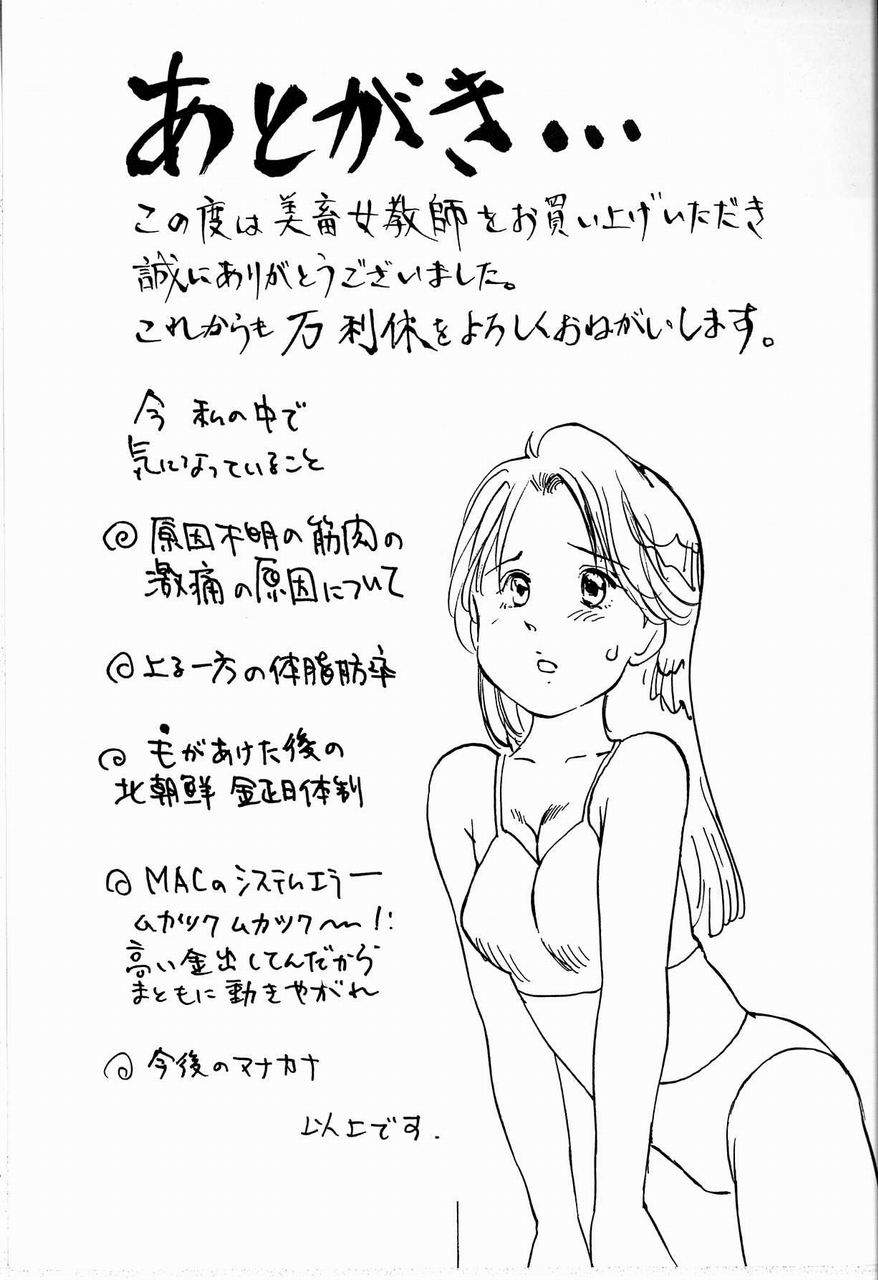 あとがき・・・
この度は美畜女教師をお買い上げいただき
誠にありがとうございました。
これからも万利休をよろしくおねがいします。
今私の中で
気になっていること
原因不明の筋肉の
激痛の原因について
上る一方の体脂肪率
もがあけた後の
北朝鮮 金正日体制
MACのシステムエラー
ムカツクムカツク〜〜!!
高い金出してんだから
まともに動きやがれ
今後のマナカナ
以上です.